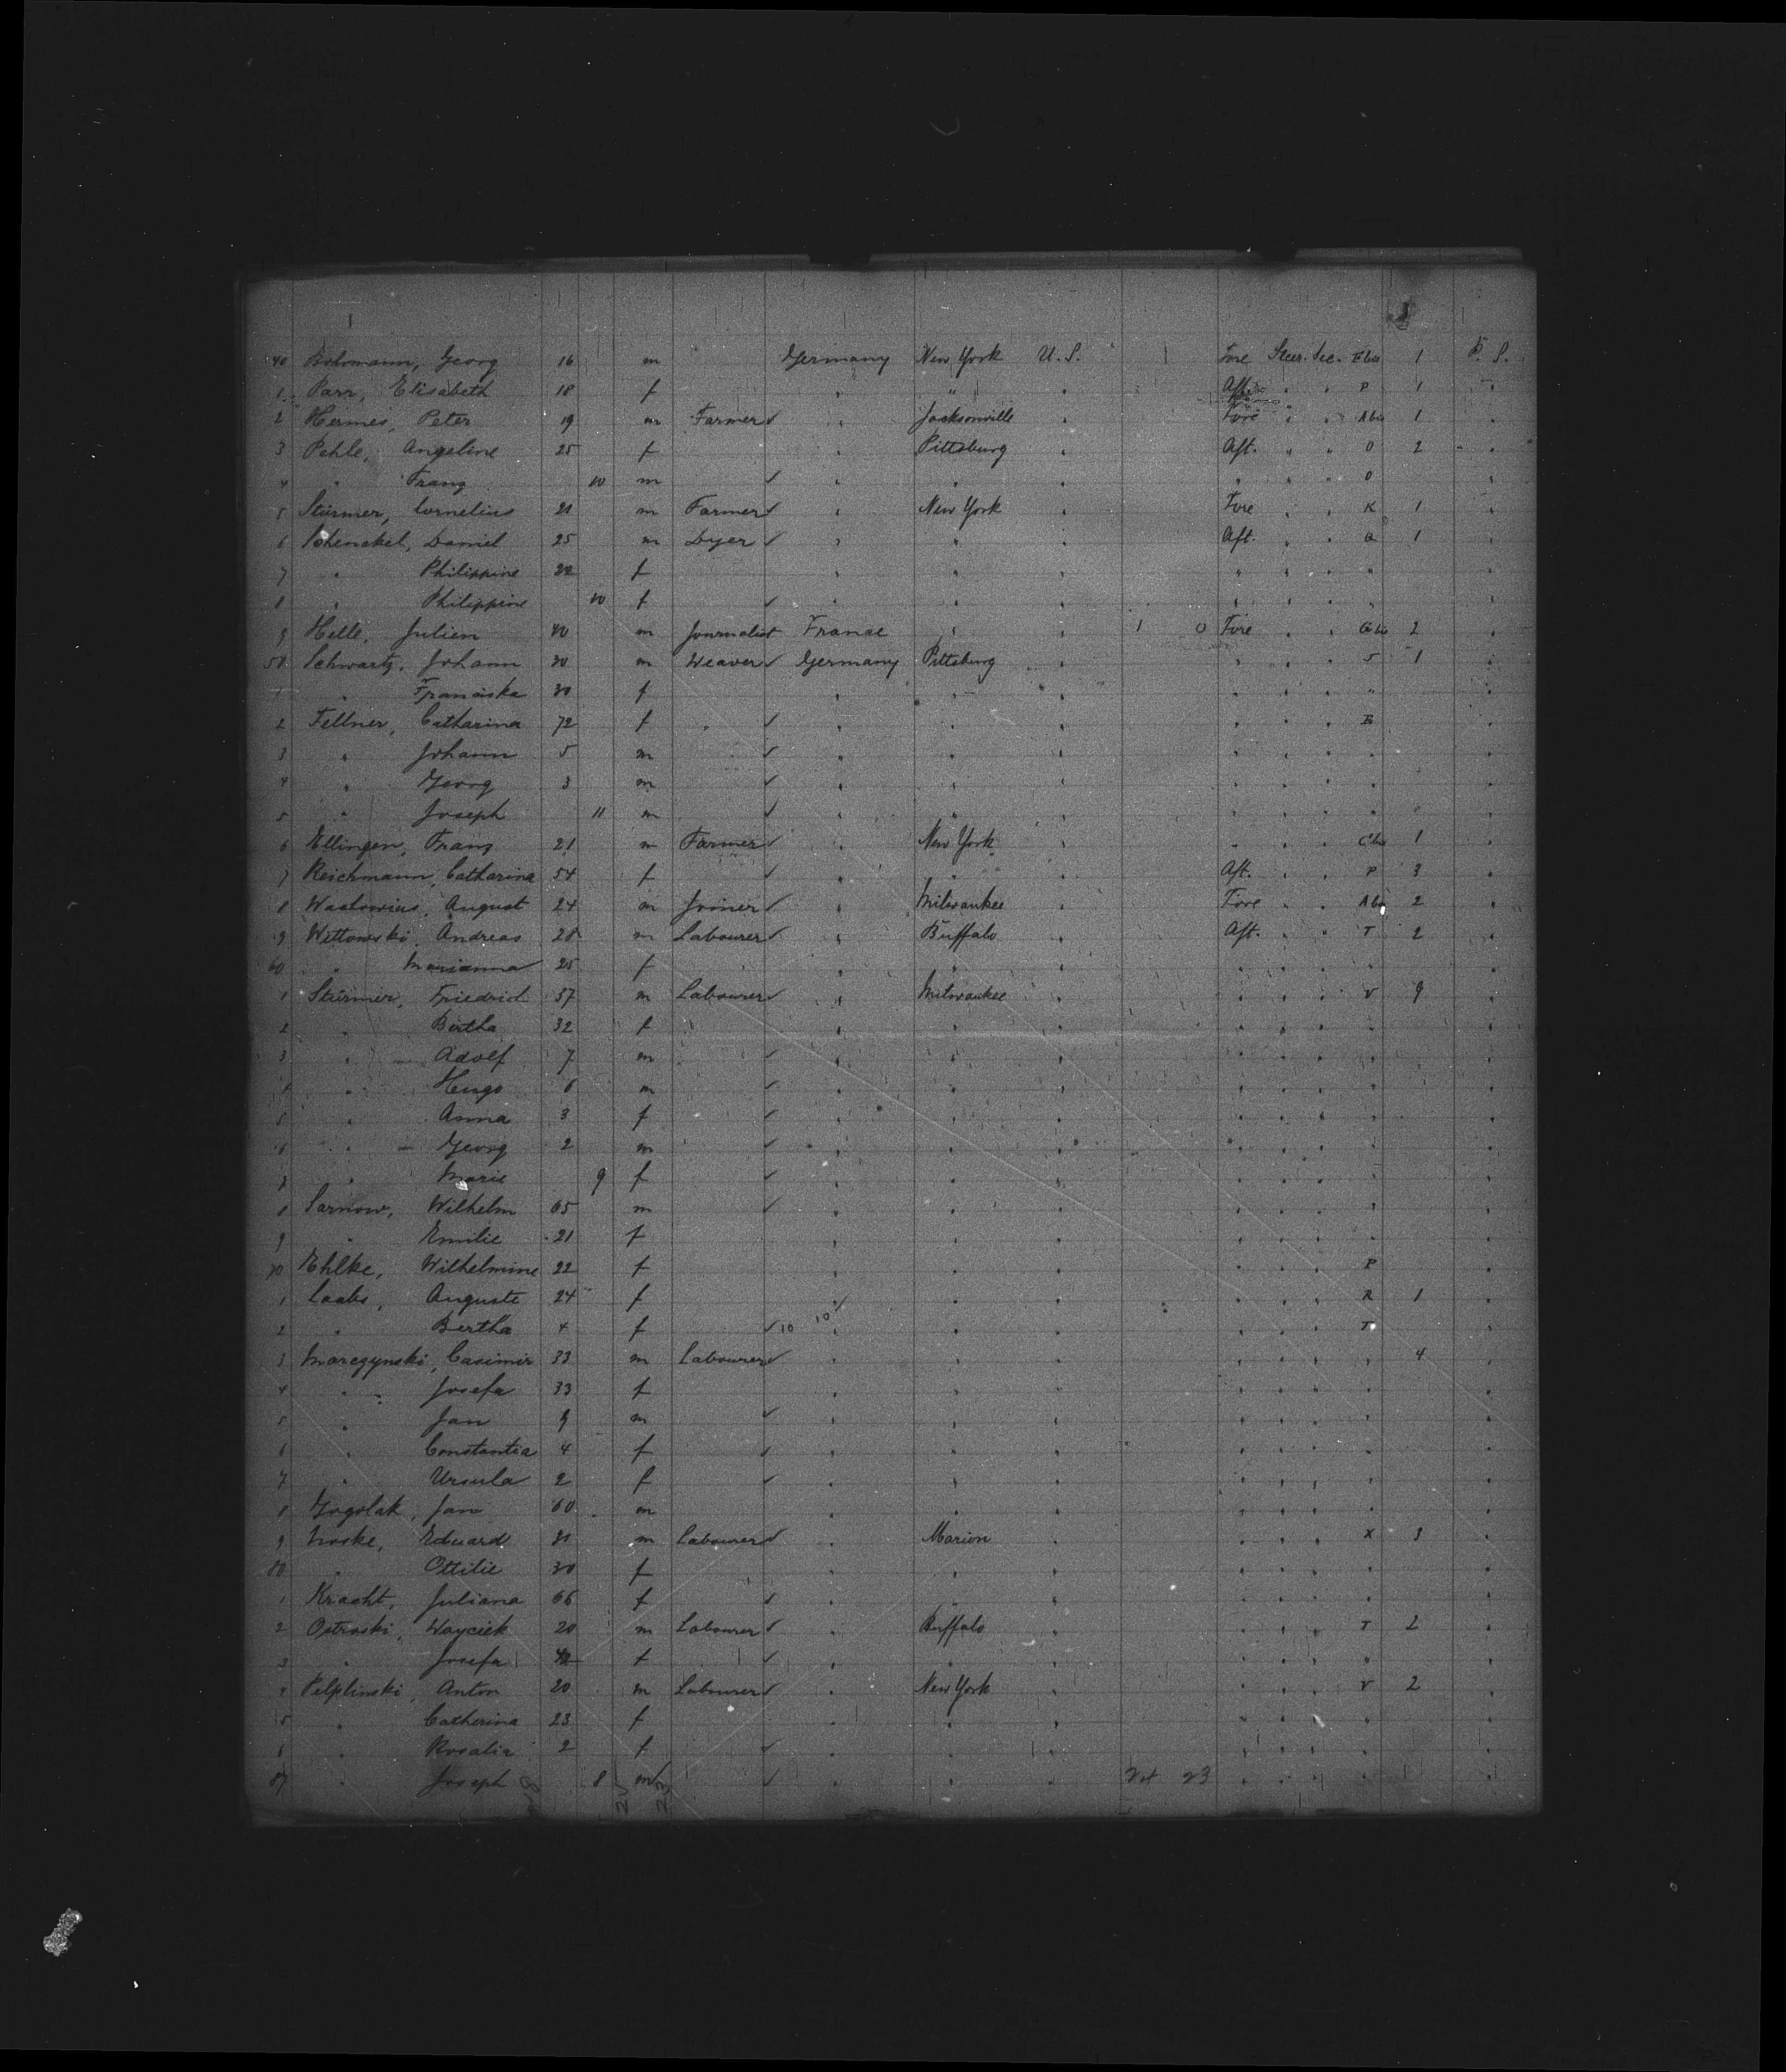 40 Bohmann, Georg 16 m Germany New York U. S. Fore Steer. Sec. 1 P. S.
1 Parr, Elisabeth 18 f " " Aft. " " P 1 "
2 Hermes, Peter 19 m Farmer " Jacksonville " Fore " " 1 "
3 Pehle, Angeline 25 f " Pittsburg " Aft. " " O 2 "
4 " Franz 10 m " " " " " " O "
5 Stürmer, Cornelius 21 m Farmer " New York " Fore " " K 1 "
6 Schenckel, Daniel 25 m Dyer " " " Aft. " " Q 1 "
7 " Philippine 22 f " " " " " " " "
8 " Philippine 10 f " " " " " " " "
9 Helle, Julien 40 m Journalist France " 1 0 Fore " " 2 "
50 Schwartz, Johann 30 m Weaver Germany Pittsburg " " " " 5 1 "
1 " Franciska 30 f " " " " " " " "
2 Fellner, Catharina 72 f " " " " " " E "
3 " Johann 5 m " " " " " " " "
4 " Georg 3 m " " " " " " " "
5 " Joseph 11 m " " " " " " " "
6 Ellingen, Franz 21 m Farmer " New York " " " " 1 "
7 Reichmann, Catharina 54 f " " " Aft. " " P 3 "
8 August 24 m Joiner " Milwaukee " Fore " " 2 "
9 Wittowski, Andreas 28 m Labourer " Buffalo " Aft. " " T 2 "
60 " Marianna 25 f " " " " " " " "
1 Stürmer, Friedrich 37 m Labourer " Milwaukee " " " " V 9 "
2 " Bertha 32 f " " " " " " " "
3 " Adolf 7 m " " " " " " " "
4 " Hugo 6 m " " " " " " " "
5 " Anna 3 f " " " " " " " "
6 " Georg 2 m " " " " " " " "
7 " Marie 9 f " " " " " " " "
8 Sarnow, Wilhelm 65 m " " " " " " " "
9 " Emilie 21 f " " " " " " " "
70 Ehlke, Wilhelmine 22 f " " " " " " P "
1 Laabs, Auguste 24 f " " " " " " R 1 "
2 " Bertha 4 f 10 10 " " " " " " T "
3 Marczynski, Casimir 33 m Labourer " " " " " " " 4 "
4 " Josefa 33 f " " " " " " " "
5 " Jan 9 m " " " " " " " "
6 " Constantia 4 f " " " " " " " "
7 " Ursula 2 f " " " " " " " "
8 Gogolak, Jan 60 m " " " " " " " "
9 Eduard 31 m Labourer " Marion " " " " X 3 "
80 " Ottilie 30 f " " " " " " " "
1 Kracht, Juliana 66 f " " " " " " " "
2 Ostroski, Wayciek 20 m Labourer " Buffalo " " " " T 2 "
3 " Josefa f " " " " " " " "
4 Pelplinski, Anton 20 m Labourer " New York " " " " V 2 "
5 " Catherina 23 f " " " " " " " "
6 " Rosalia 2 f " " " " " " " "
87 " Joseph 8 m " " " 24 23 " " " " "